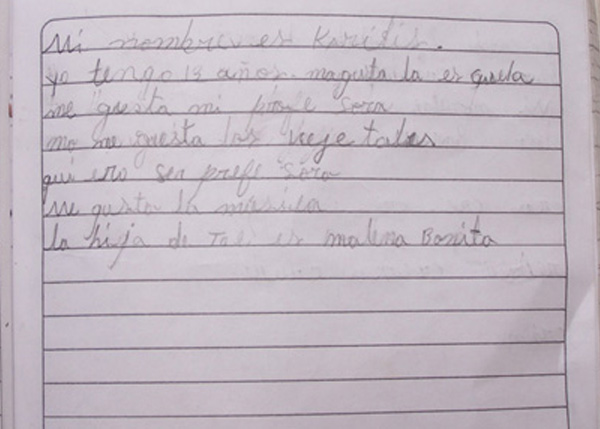 Mi nombre es Karilis.
yo tengo 13 años. magusta la es quela
me gusta mi profe sora
mo me gusta las vejetales
qui ero ser profe sora
Me gusta la música
la hija de es malena Bonita